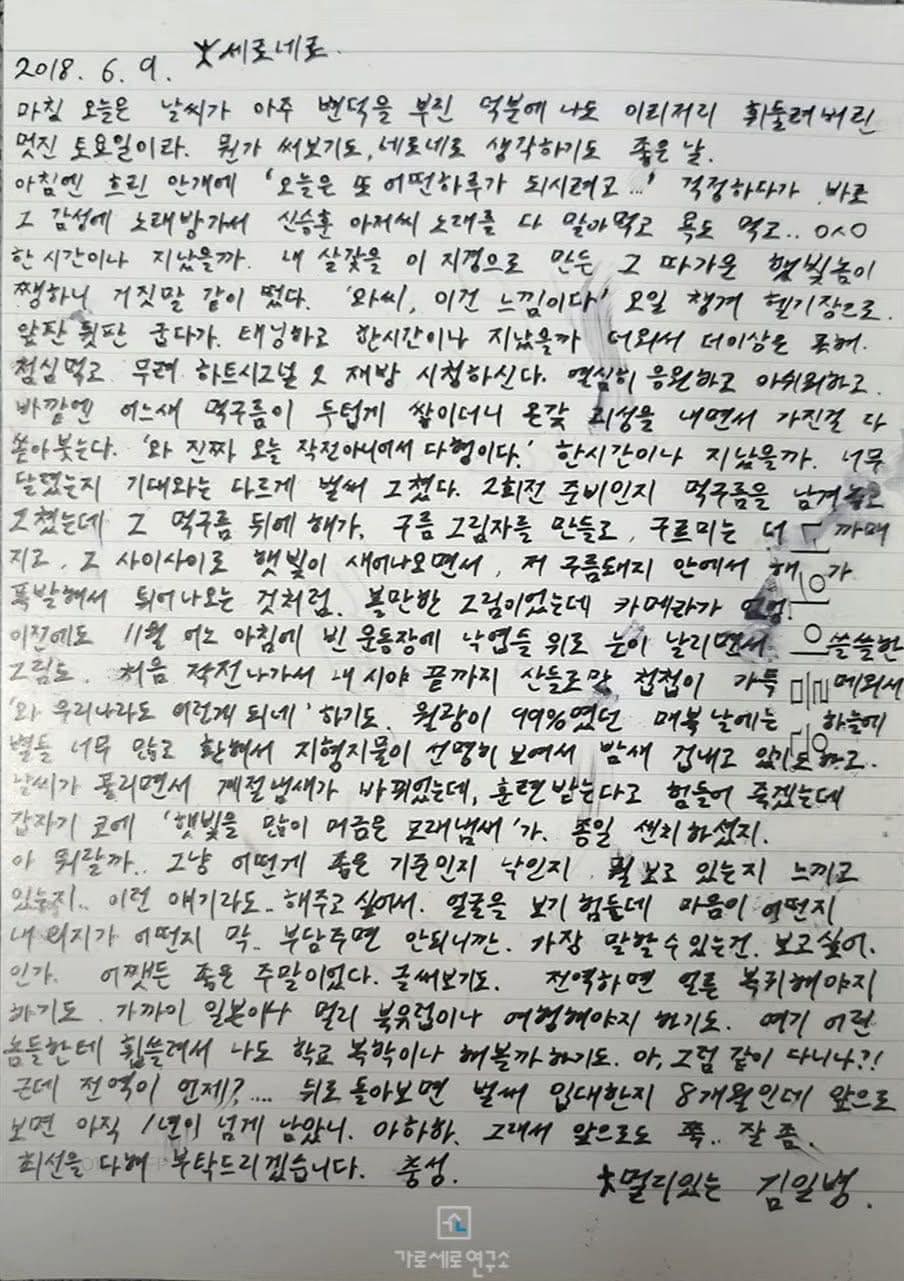 2018. 6. 9. 大세로네로.
마침 오늘은 날씨가 아주 변덕을 부린 덕분에 나도 이리저리 휘둘려버린
멋진 토요일이라. 뭔가 써보기도, 네로네로 생각하기도 좋은 날.
아침엔 흐린 안개에 '오늘은 또 어떤하루가 되시려고...' 걱정하다가 바로
그 감성에 노래방가서 신승훈 아저씨 노래를 다 말아먹고 욕도 먹고.. ㅇㅅㅇ
한시간이나 지났을까. 내 살갗을 이 지경으로 만든 그 따가운 햇빛놈이
쨍하니 거짓말 같이 떴다. '와씨, 이건 느낌이다' 오일 챙겨 헬기장으로.
앞판 뒷판 굽다가. 태닝하고 한시간이나 지났을까 더워서 더이상은 못해.
점심먹고 무려 하트시그널 2 재방 시청하신다. 열심히 응원하고 아쉬워하고.
바깥엔 어느새 먹구름이 두텁게 쌓이더니 온갖 괴성을 내면서 가진걸 다
쏟아붓는다. '와 진짜 오늘 작전아니어서 다행이다.' 한시간이나 지났을까. 너무
달렸는지 기대와는 다르게 벌써 그쳤다. 2회전 준비인지 먹구름을 남겨놓고
그쳤는데 그 먹구름 뒤에 해가, 구름 그림자를 만들고, 구르미는 더 까매
지고, 그 사이사이로 햇빛이 새어나오면서, 저 구름돼지 안에서 해가
폭발해서 튀어나오는 것처럼. 볼만한 그림이었는데 카메라가
이전에도 11월 어느 아침에 빈 운동장에 낙엽들 위로 눈이 날리면서 쓸쓸한
그림도. 처음 작전나가서 내 시야 끝까지 산들로만 첩첩이 가득 메워서
'와 우리나라도 이런게 되네' 하기도. 월광이 99%였던 매복날에는 하늘에
별들 너무 많고 환해서 지형지물이 선명히 보여서 밤새 겁내고 있기도 하고..
날씨가 풀리면서 계절냄새가 바뀌었는데, 훈련받는다고 힘들어 죽겠는데
갑자기 코에 '햇빛을 많이 머금은 모래냄새'가. 종일 센치하셨지.
아 뭐랄까.. 그냥 어떤게 좋은 기준인지 낙인지 뭘 보고 있는지 느끼고
있는지.. 이런 얘기라도.. 해주고 싶어서. 얼굴을 보기 힘든데 마음이 어떤지
내 의지가 어떤지 막.. 부담주면 안되니깐. 가장 말할수있는건. 보고싶어.
인가. 어쨋든 좋은 주말이었다. 글써보기도. 전역하면 얼른 복귀해야지
하기도. 가까이 일본이나 멀리 북유럽이나 여행해야지 하기도. 여기 어린
놈들한테 휩쓸려서 나도 학교 복학이나 해볼까하기도. 아, 그럼 같이 다니나?!
근데 전역이 언제?.... 뒤로 돌아보면 벌써 입대한지 8개월인데 앞으로
보면 아직 1년이 넘게 남았니. 아하하. 그래서 앞으로도 쭉.. 잘 좀.
최선을 다해 부탁드리겠습니다. 충성.
大멀리있는 김일병.
가로세로연구소